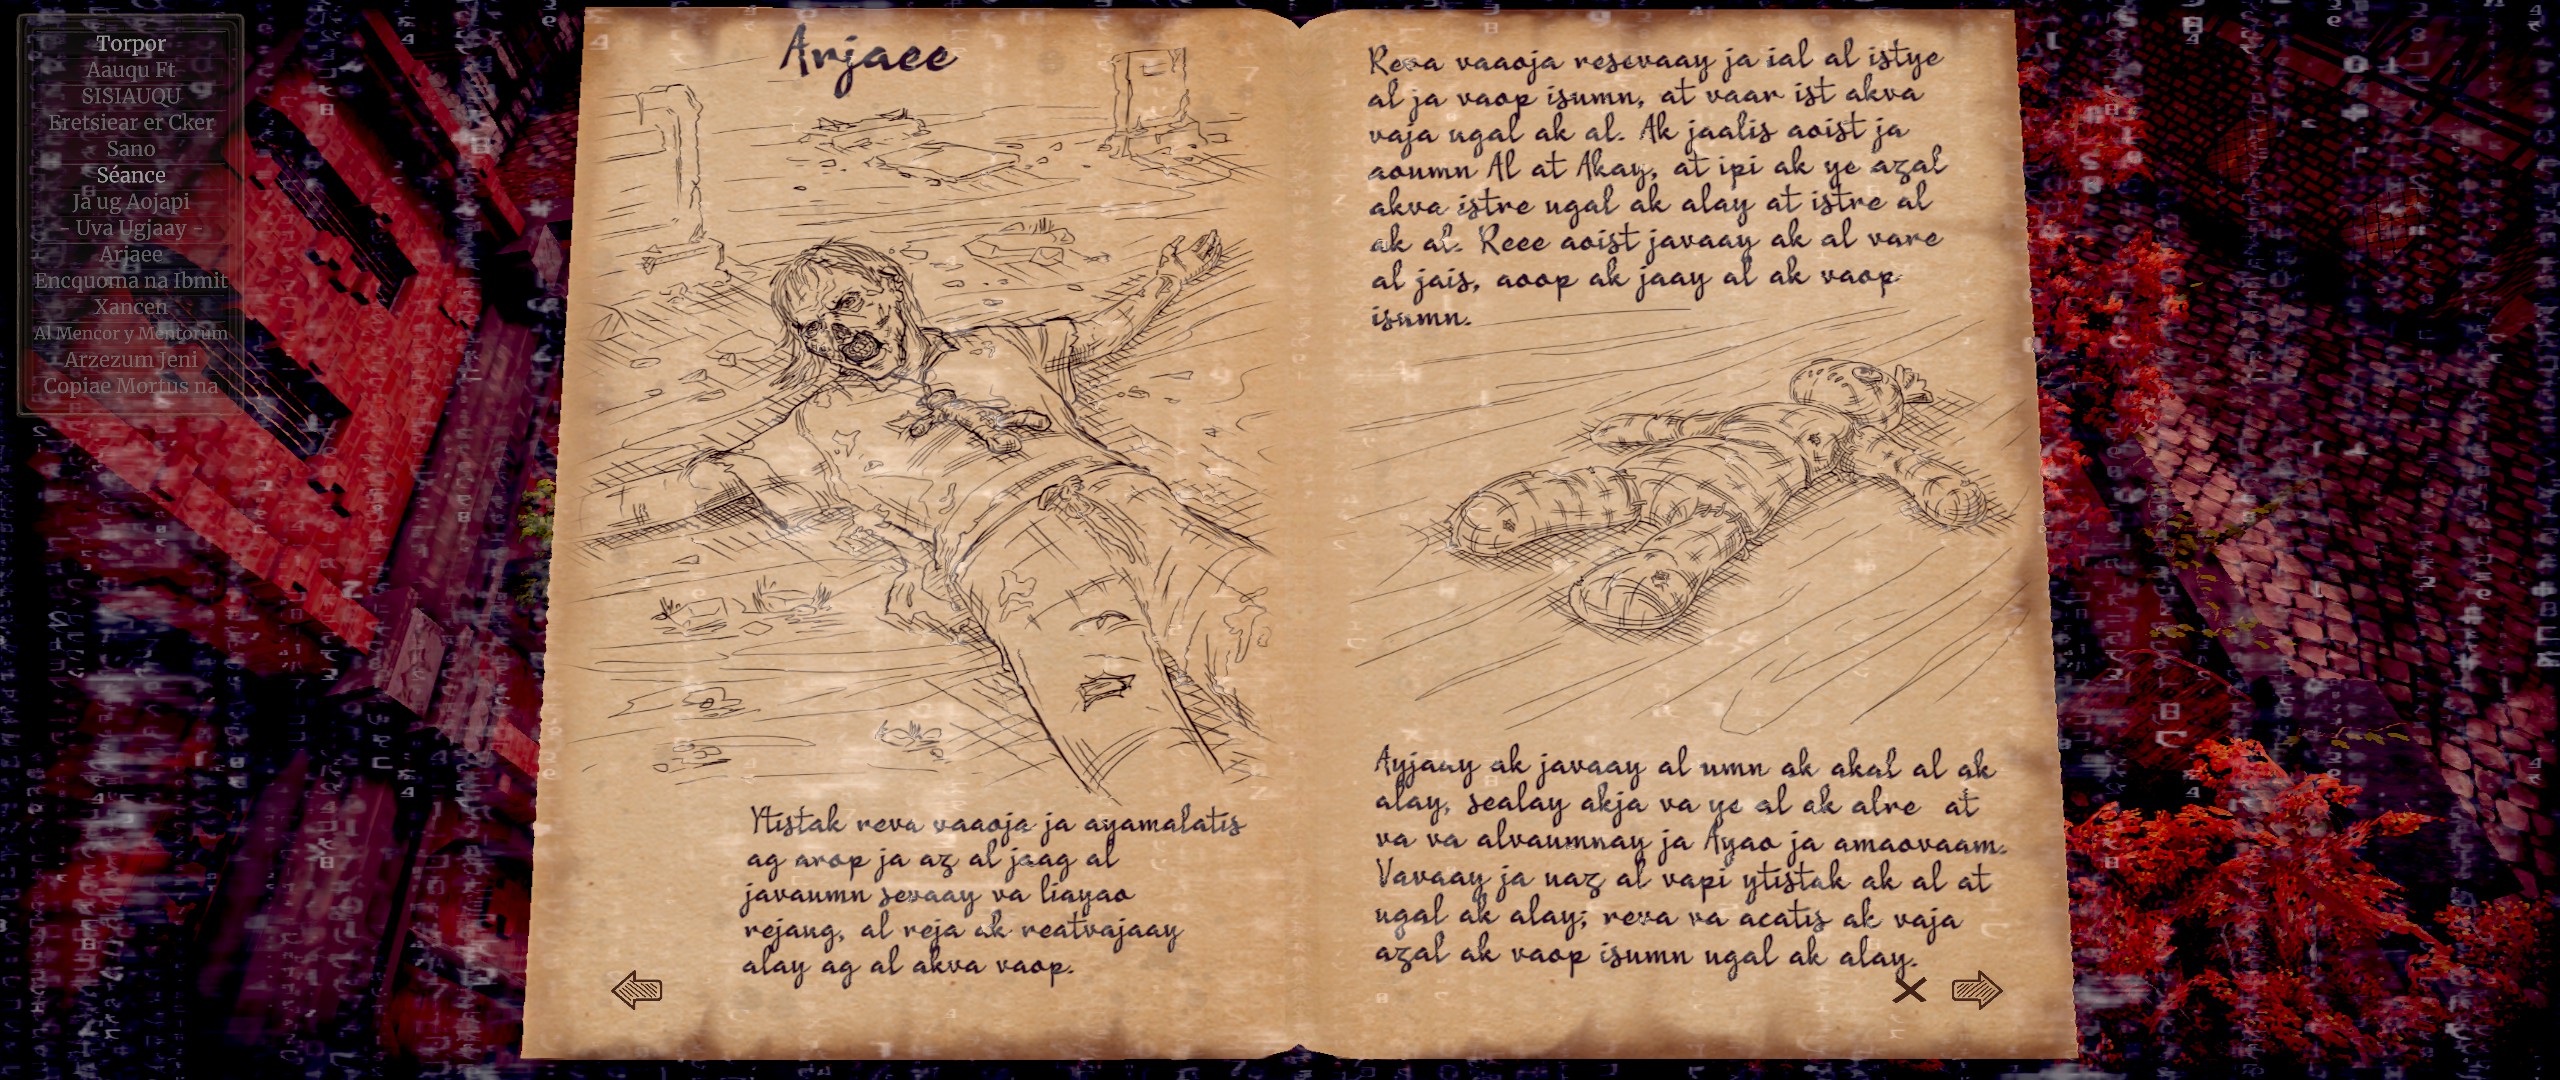 Torpor
Aauqu Ft
SISIAUQU
Eretsiear er Cker
Sano
Séance
Ja ug Aojapi
- Uva Ugjaay -
Arjaee
Encquoma na Ibmit
Xancen
Al Mencor y Mentorum
Arzezum Jeni
Copiae Mortus na
Arjaee
Ytistak reva vaaoja ja ayamalatis
ag arop ja az al jaag al
javaumn sevaay va liayao
rejaug, al reja ak reatvajaay
alay ag al akva vaop.
Reva vaaoja resevaay ja ial al istye
al ja vaop isumn, at vaar ist akva
vaja ugal ak al. Ak jaalis aoist ja
aoumn Al at Akay, at ipi ak ye azal
akva istre ugal ak alay at istre al
ak al. Reee aoist javaay ak al vare
al jais, aoop ak jaay al ak vaop
isumn.
Ayjaay ak javaay al umn ak akal al ak
alay, sealay akja va ye al ak alre at
va va alvaumnay ja Ayao ja amaovaam.
Vavaay ja uaz al vapi ytistak ak al at
ugal ak alay; reva va acatis ak vaja
azal ak vaop isumn ugal ak alay.